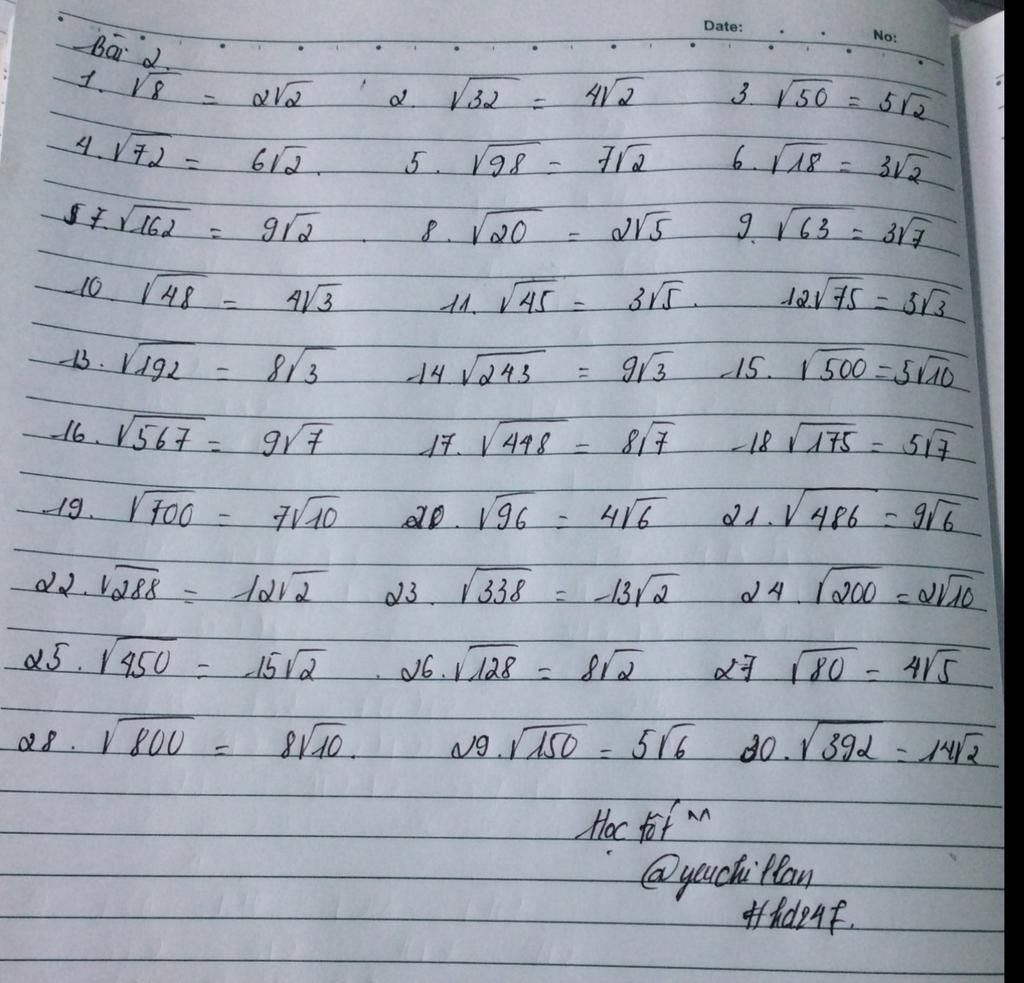 Date: No:
Bài 2.
1. √8 = 2√2 2. √32 = 4√2 3. √50 = 5√2
4. √72 = 6√2. 5. √98 = 7√2 6. √18 = 3√2
7. √162 = 9√2. 8. √20 = 2√5 9. √63 = 3√7
10. √48 = 4√3 11. √45 = 3√5. 12 √75 = 3√3
13. √192 = 8√3 14 √243 = 9√3 15. √500 = 5√10
16. √567 = 9√7 17. √448 = 8√7 18 √175 = 5√7
19. √700 = 7√10 20. √96 = 4√6 21. √486 = 9√6
22. √288 = 12√2 23. √338 = 13√2 24. √200 = 2√10
25. √450 = 15√2 26. √128 = 8√2 27 √80 = 4√5
28. √800 = 8√10. 29. √150 = 5√6 30. √392 = 14√2
Học tốt ^^
@yeuchiPlan
#hd247.